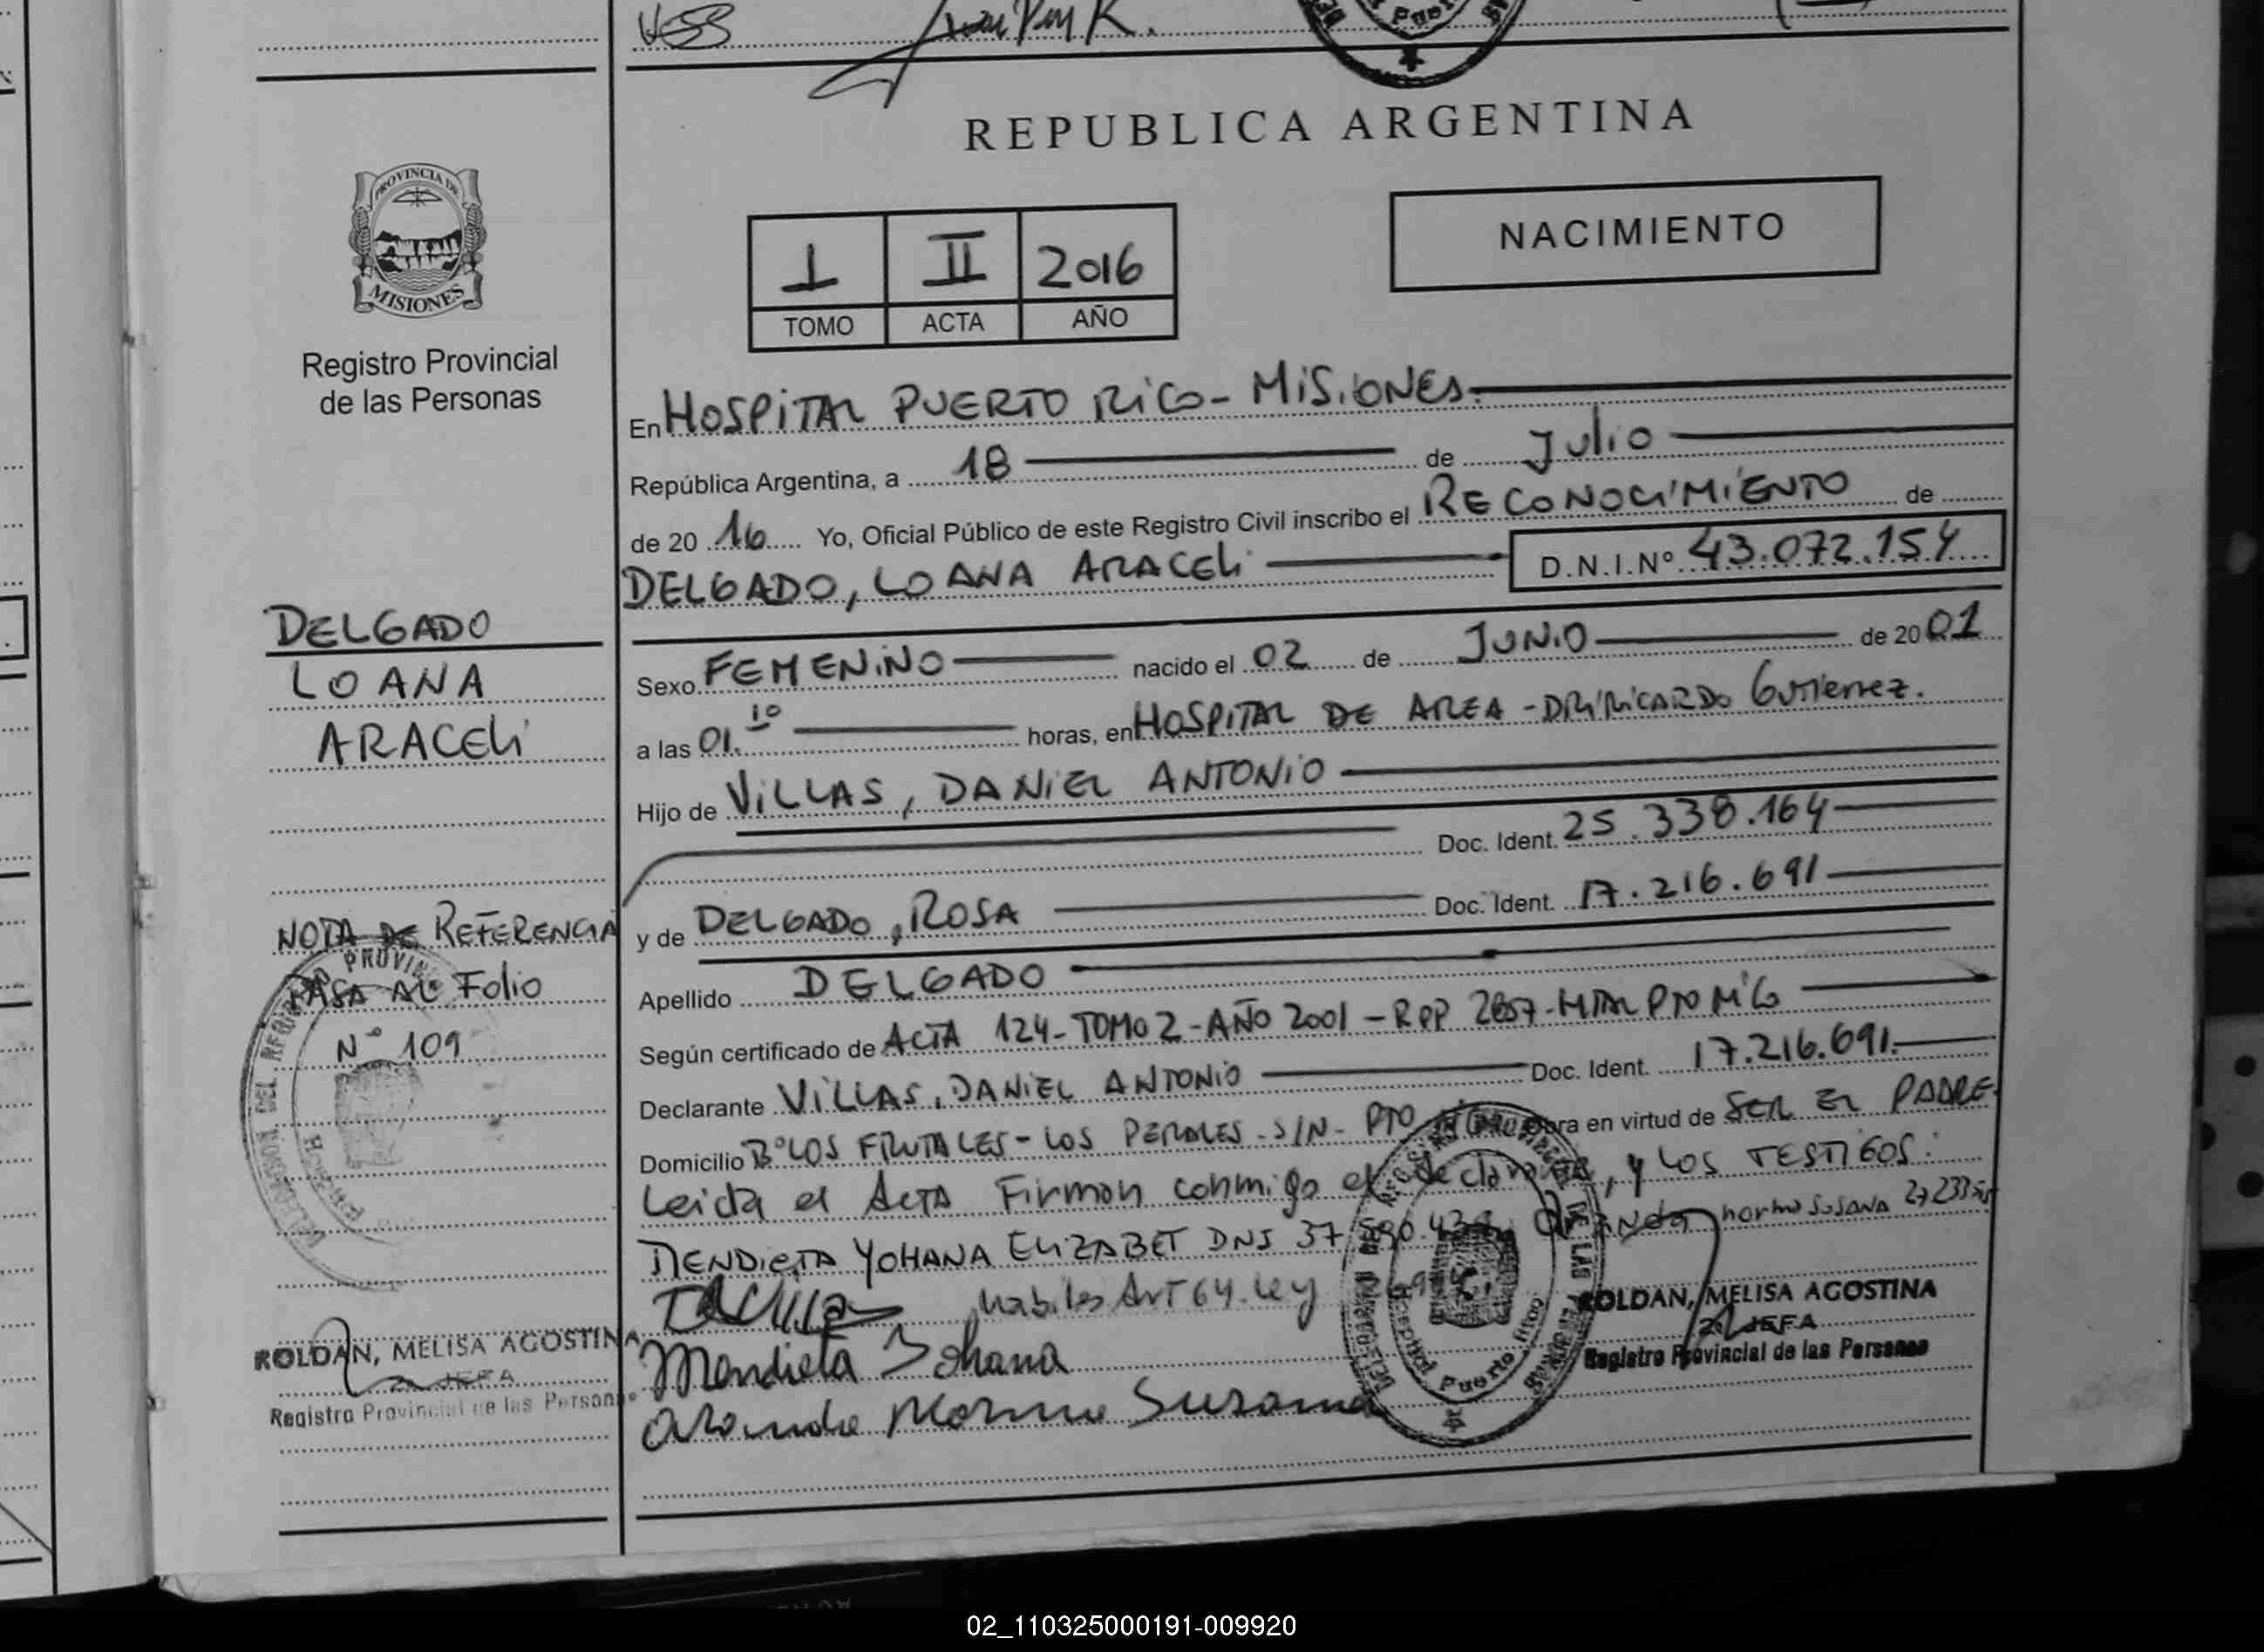 REPUBLICA ARGENTINA
PROVINCIA DE
MISIONES
Registro Provincial
de las Personas
NACIMIENTO
I II 2016
TOMO ACTA AÑO
En HOSPITAL PUERTO RICO - MISIONES.
República Argentina, a 18 de Julio
de 20 16 Yo, Oficial Público de este Registro Civil inscribo el RECONOCIMIENTO de
DELGADO, LOANA ARACELI D.N.I.Nº 43.072.154
DELGADO
LOANA
ARACELI
Sexo FEMENINO nacido el 02 de JUNIO de 20 01
a las 01.10 horas, en HOSPITAL DE AREA - DR. RICARDO Gutierrez.
Hijo de VILLAS, DANIEL ANTONIO
Doc. Ident. 25.338.164
y de DELGADO, ROSA Doc. Ident. 17.216.691
NOTA DE REFERENCIA
PASA AL Folio
N° 109
Apellido DELGADO
Según certificado de ACTA 124 - TOMO 2 - AÑO 2001 - RPP 2857 - HTAL PTO RICO
Declarante VILLAS, DANIEL ANTONIO Doc. Ident. 17.216.691.
Domicilio B° LOS FRUTALES - LOS PERALES - S/N - PTO obra en virtud de SER EL PADRE.
Leida el Acta Firman conmigo el declarante, y LOS TESTIGOS:
MENDIETA YOHANA ELIZABET DNI 37 norma SUSANA
habiles Art 64. Ley
Mendieta Yohana
Susana
Hospital Puerto Rico
ROLDAN, MELISA AGOSTINA
2da JEFA
Registro Provincial de las Personas
ROLDAN, MELISA AGOSTINA
2da JEFA
Registro Provincial de las Personas
02_110325000191-009920